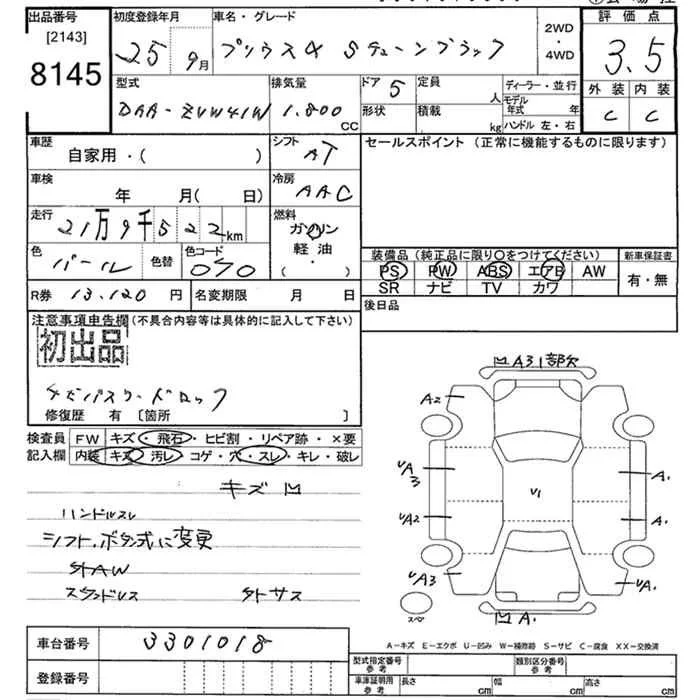 出品番号 [2143] 8145
初度登録年月 25 9月
車名・グレード プリウスα Sチューンブラック
2WD・4WD
評価点 3.5
外装 C 内装 C
型式 DAA-ZVW41W
排気量 1.800 CC
ドア 5
形状
定員 人
積載 kg
ディーラー・並行
モデル年式 年
ハンドル 左・右
車歴 自家用・( )
シフト AT
セールスポイント (正常に機能するものに限ります)
車検 年 月( 日)
冷房 AAC
走行 21万9千522km
燃料 ガソリン・軽油・( ・ )
色 パール 色替
色コード 070
装備品(純正品に限り○をつけてください)
PS PW ABS エアB AW
SR ナビ TV カワ
新車保証書 有・無
R券 13.120円 名変期限 月 日
後日品
注意事項申告欄(不具合内容等は具体的に記入して下さい)
初出品
ナビパスワードロック
修復歴 有 〔箇所 〕
検査員記入欄
FW キズ・飛石・ヒビ割・リペア跡・×要
内装 キズ 汚レ・コゲ・穴・スレ・キレ・破レ
キズ凹
ハンドルスレ
シフト,ボタン式に変更
外AW
スタンドレス 外サス
凹A31部欠
A2
UA3
UA2
UA3
U1
A1
A1
UA1
凹A1
スペア
A-キズ E-エクボ U-凹み W-補修跡 S-サビ C-腐食 XX-交換済
車台番号 3301018
登録番号
型式指定番号 参考
類別区分番号 参考
車庫証明用 参考 長さ cm 幅 cm 高さ cm